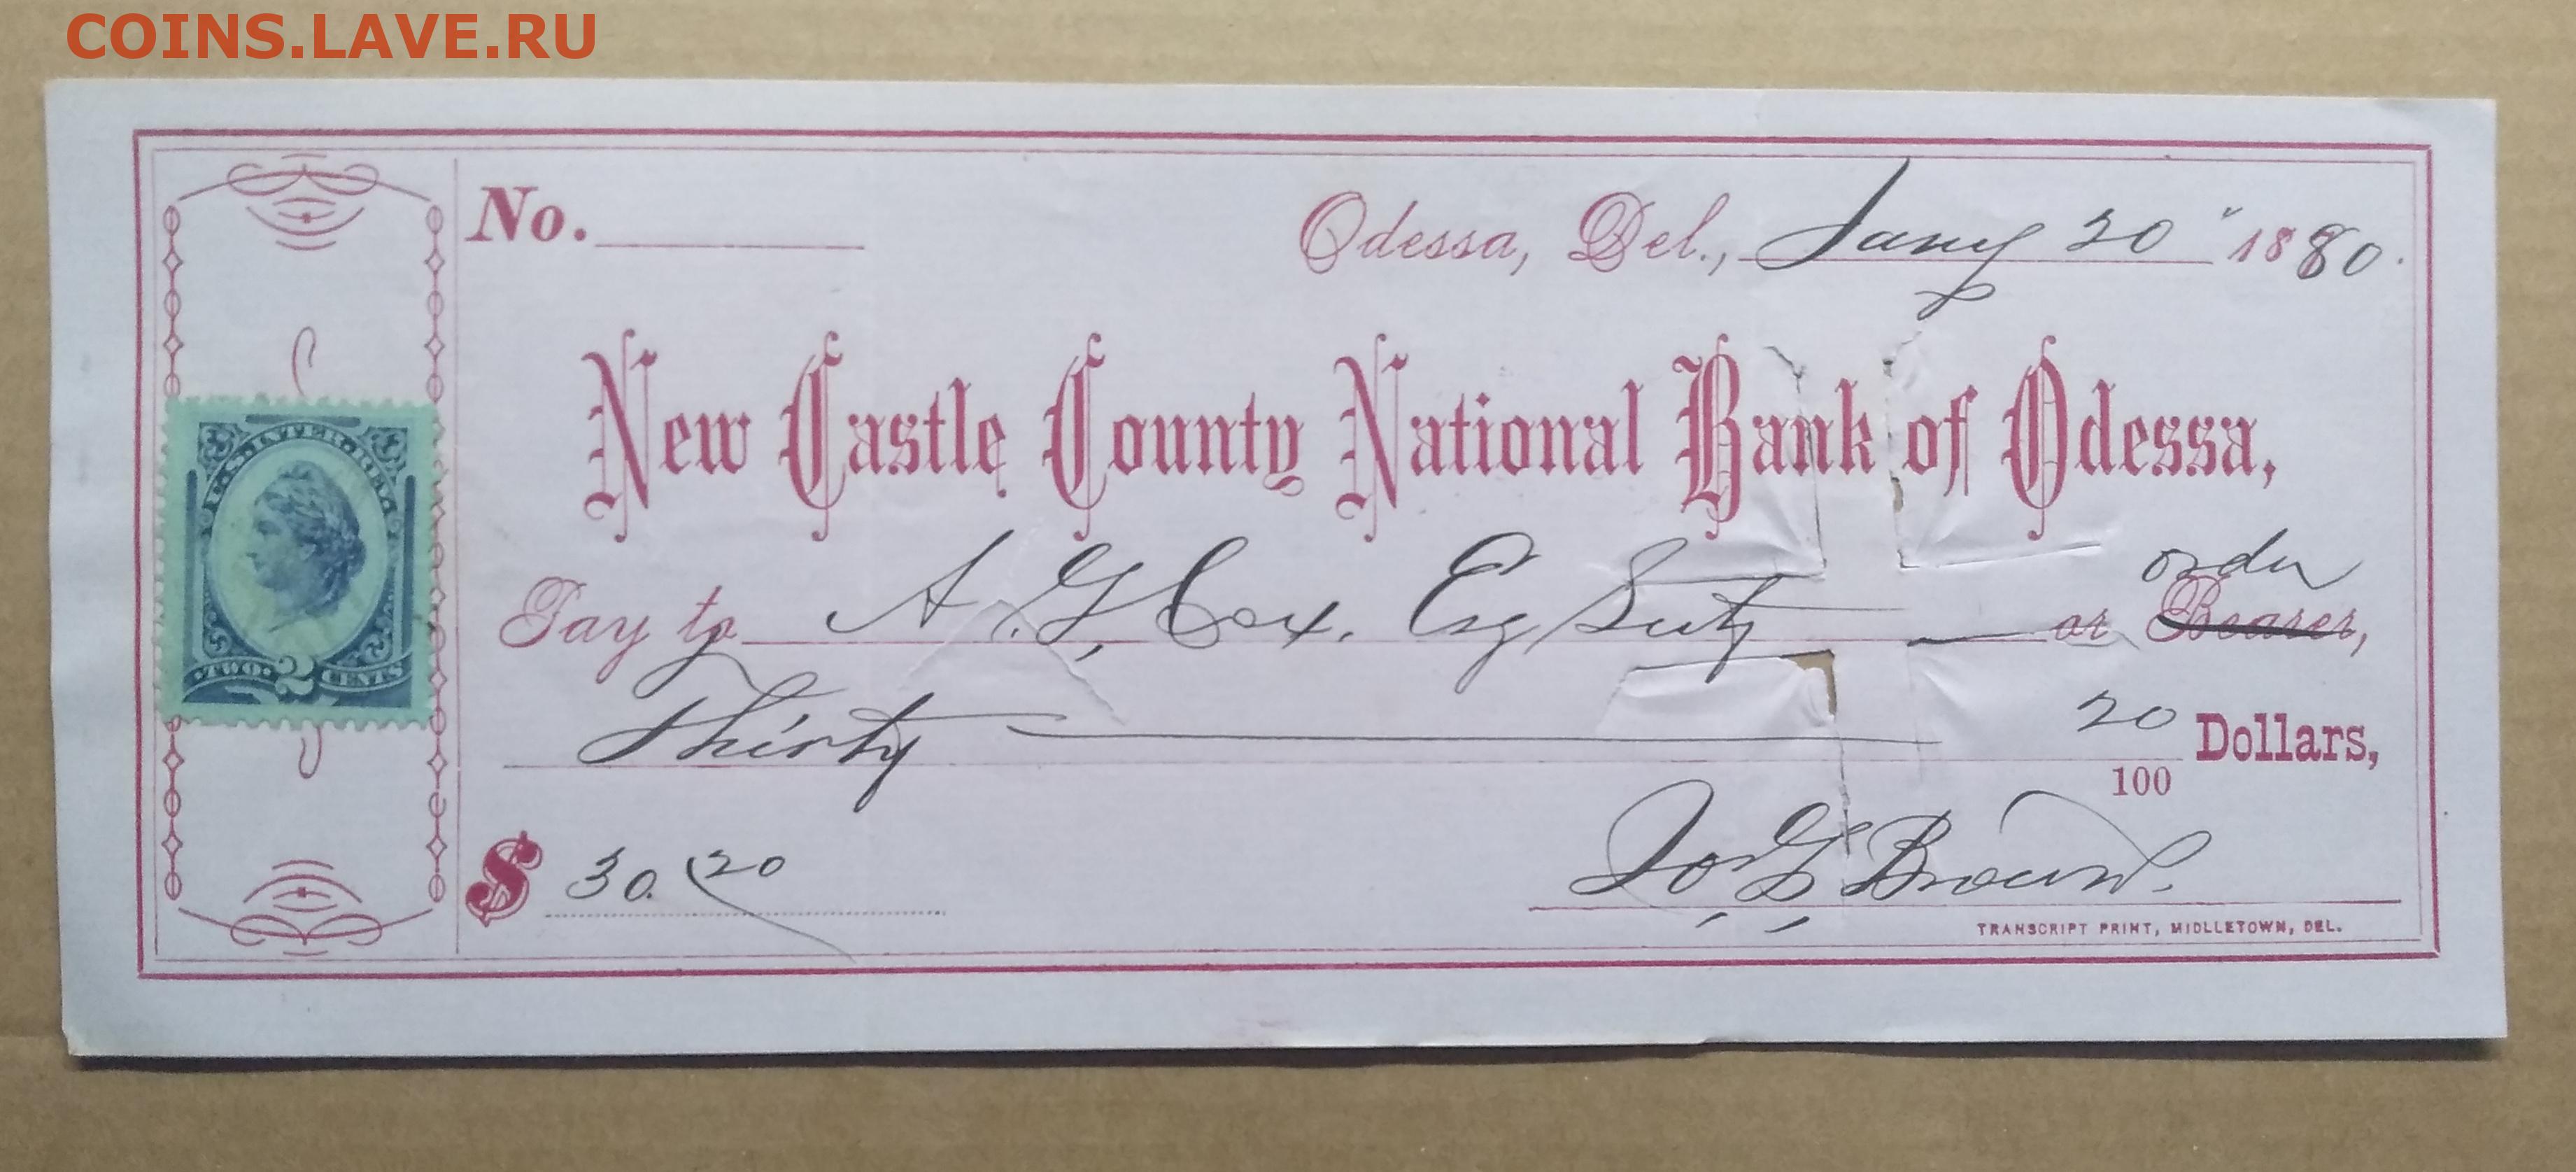 COINS.LAVE.RU
No.
Odessa, Del., Jany 20" 1880.
New Castle County National Bank of Odessa,
U.S. INTER. REV.
TWO 2 CENTS
order
Pay to A. G. Cox, Esq or Bearer,
Thirty 20
100 Dollars,
$ 30.20
Jos G Brown.
TRANSCRIPT PRINT, MIDLLETOWN, DEL.